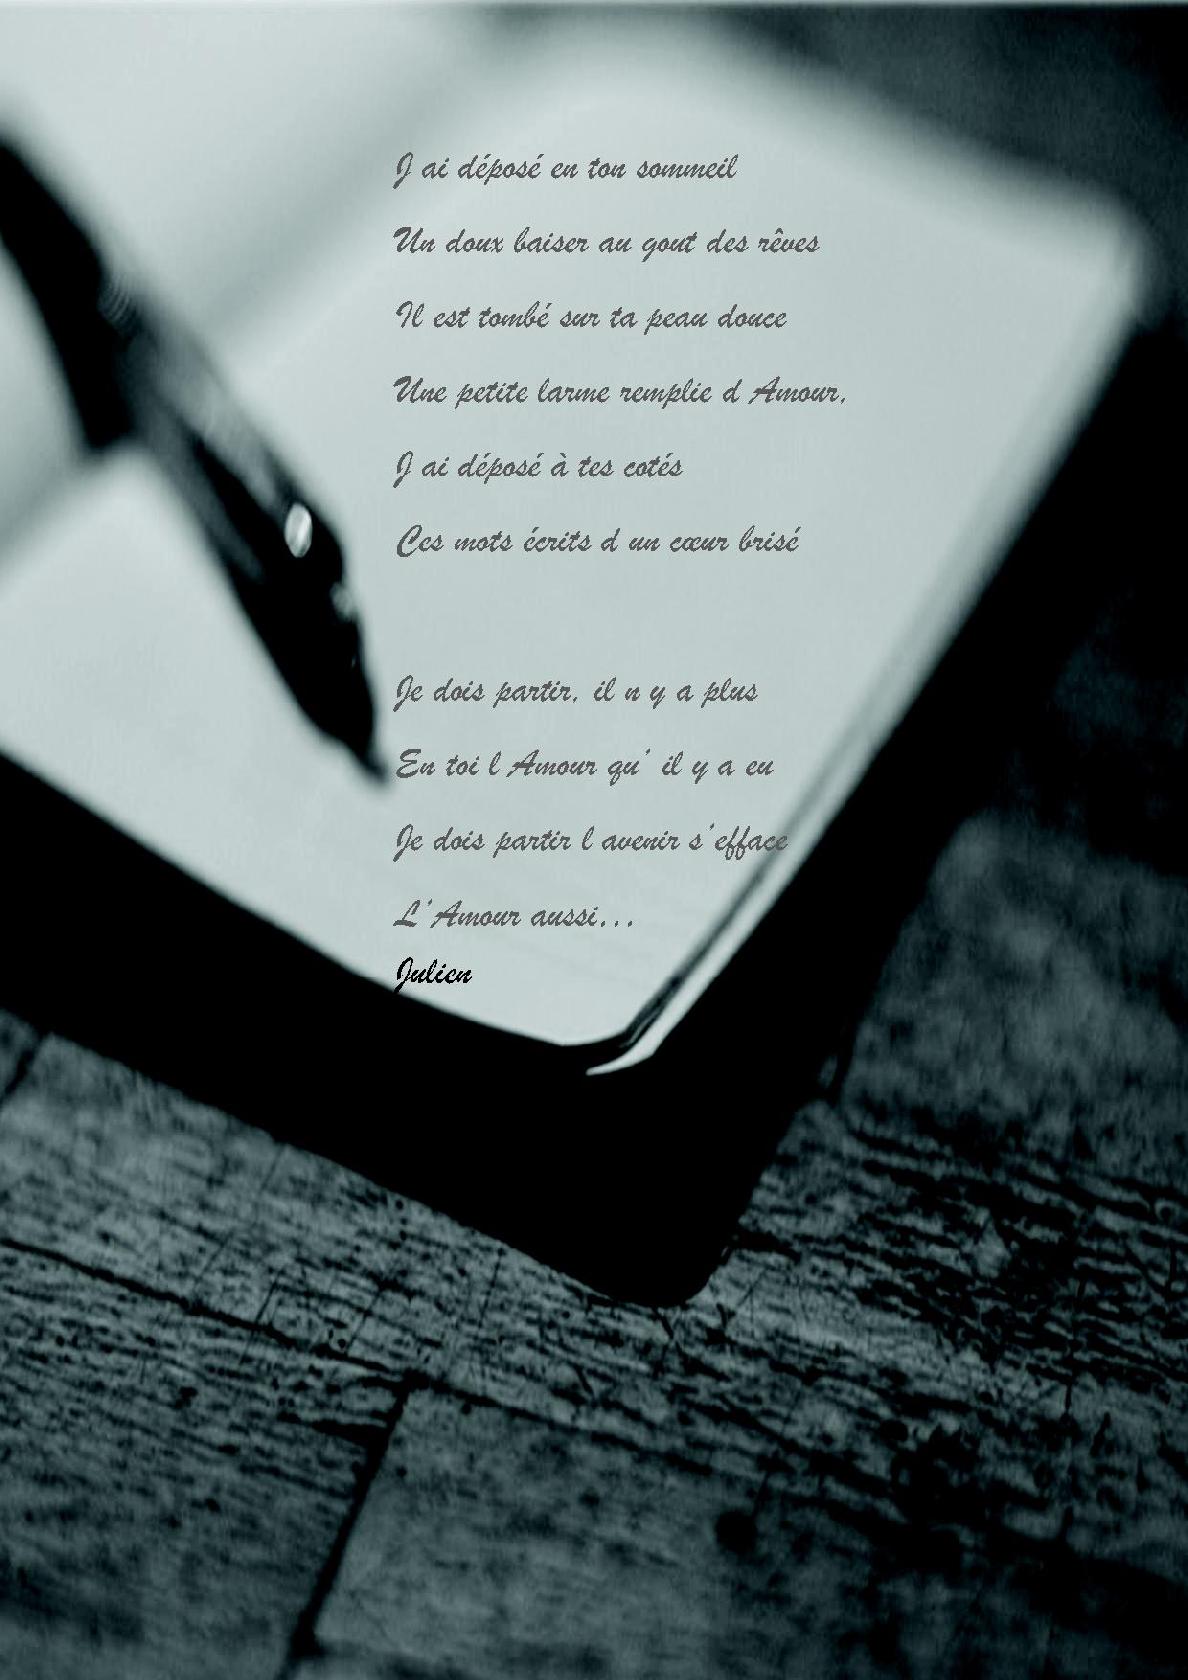 J ai déposé en ton sommeil
Un doux baiser au gout des rêves
Il est tombé sur ta peau douce
Une petite larme remplie d Amour,
J ai déposé à tes cotés
Ces mots écrits d un cœur brisé
Je dois partir, il n y a plus
En toi l Amour qu' il y a eu
Je dois partir l avenir s'efface
L'Amour aussi...
Julien